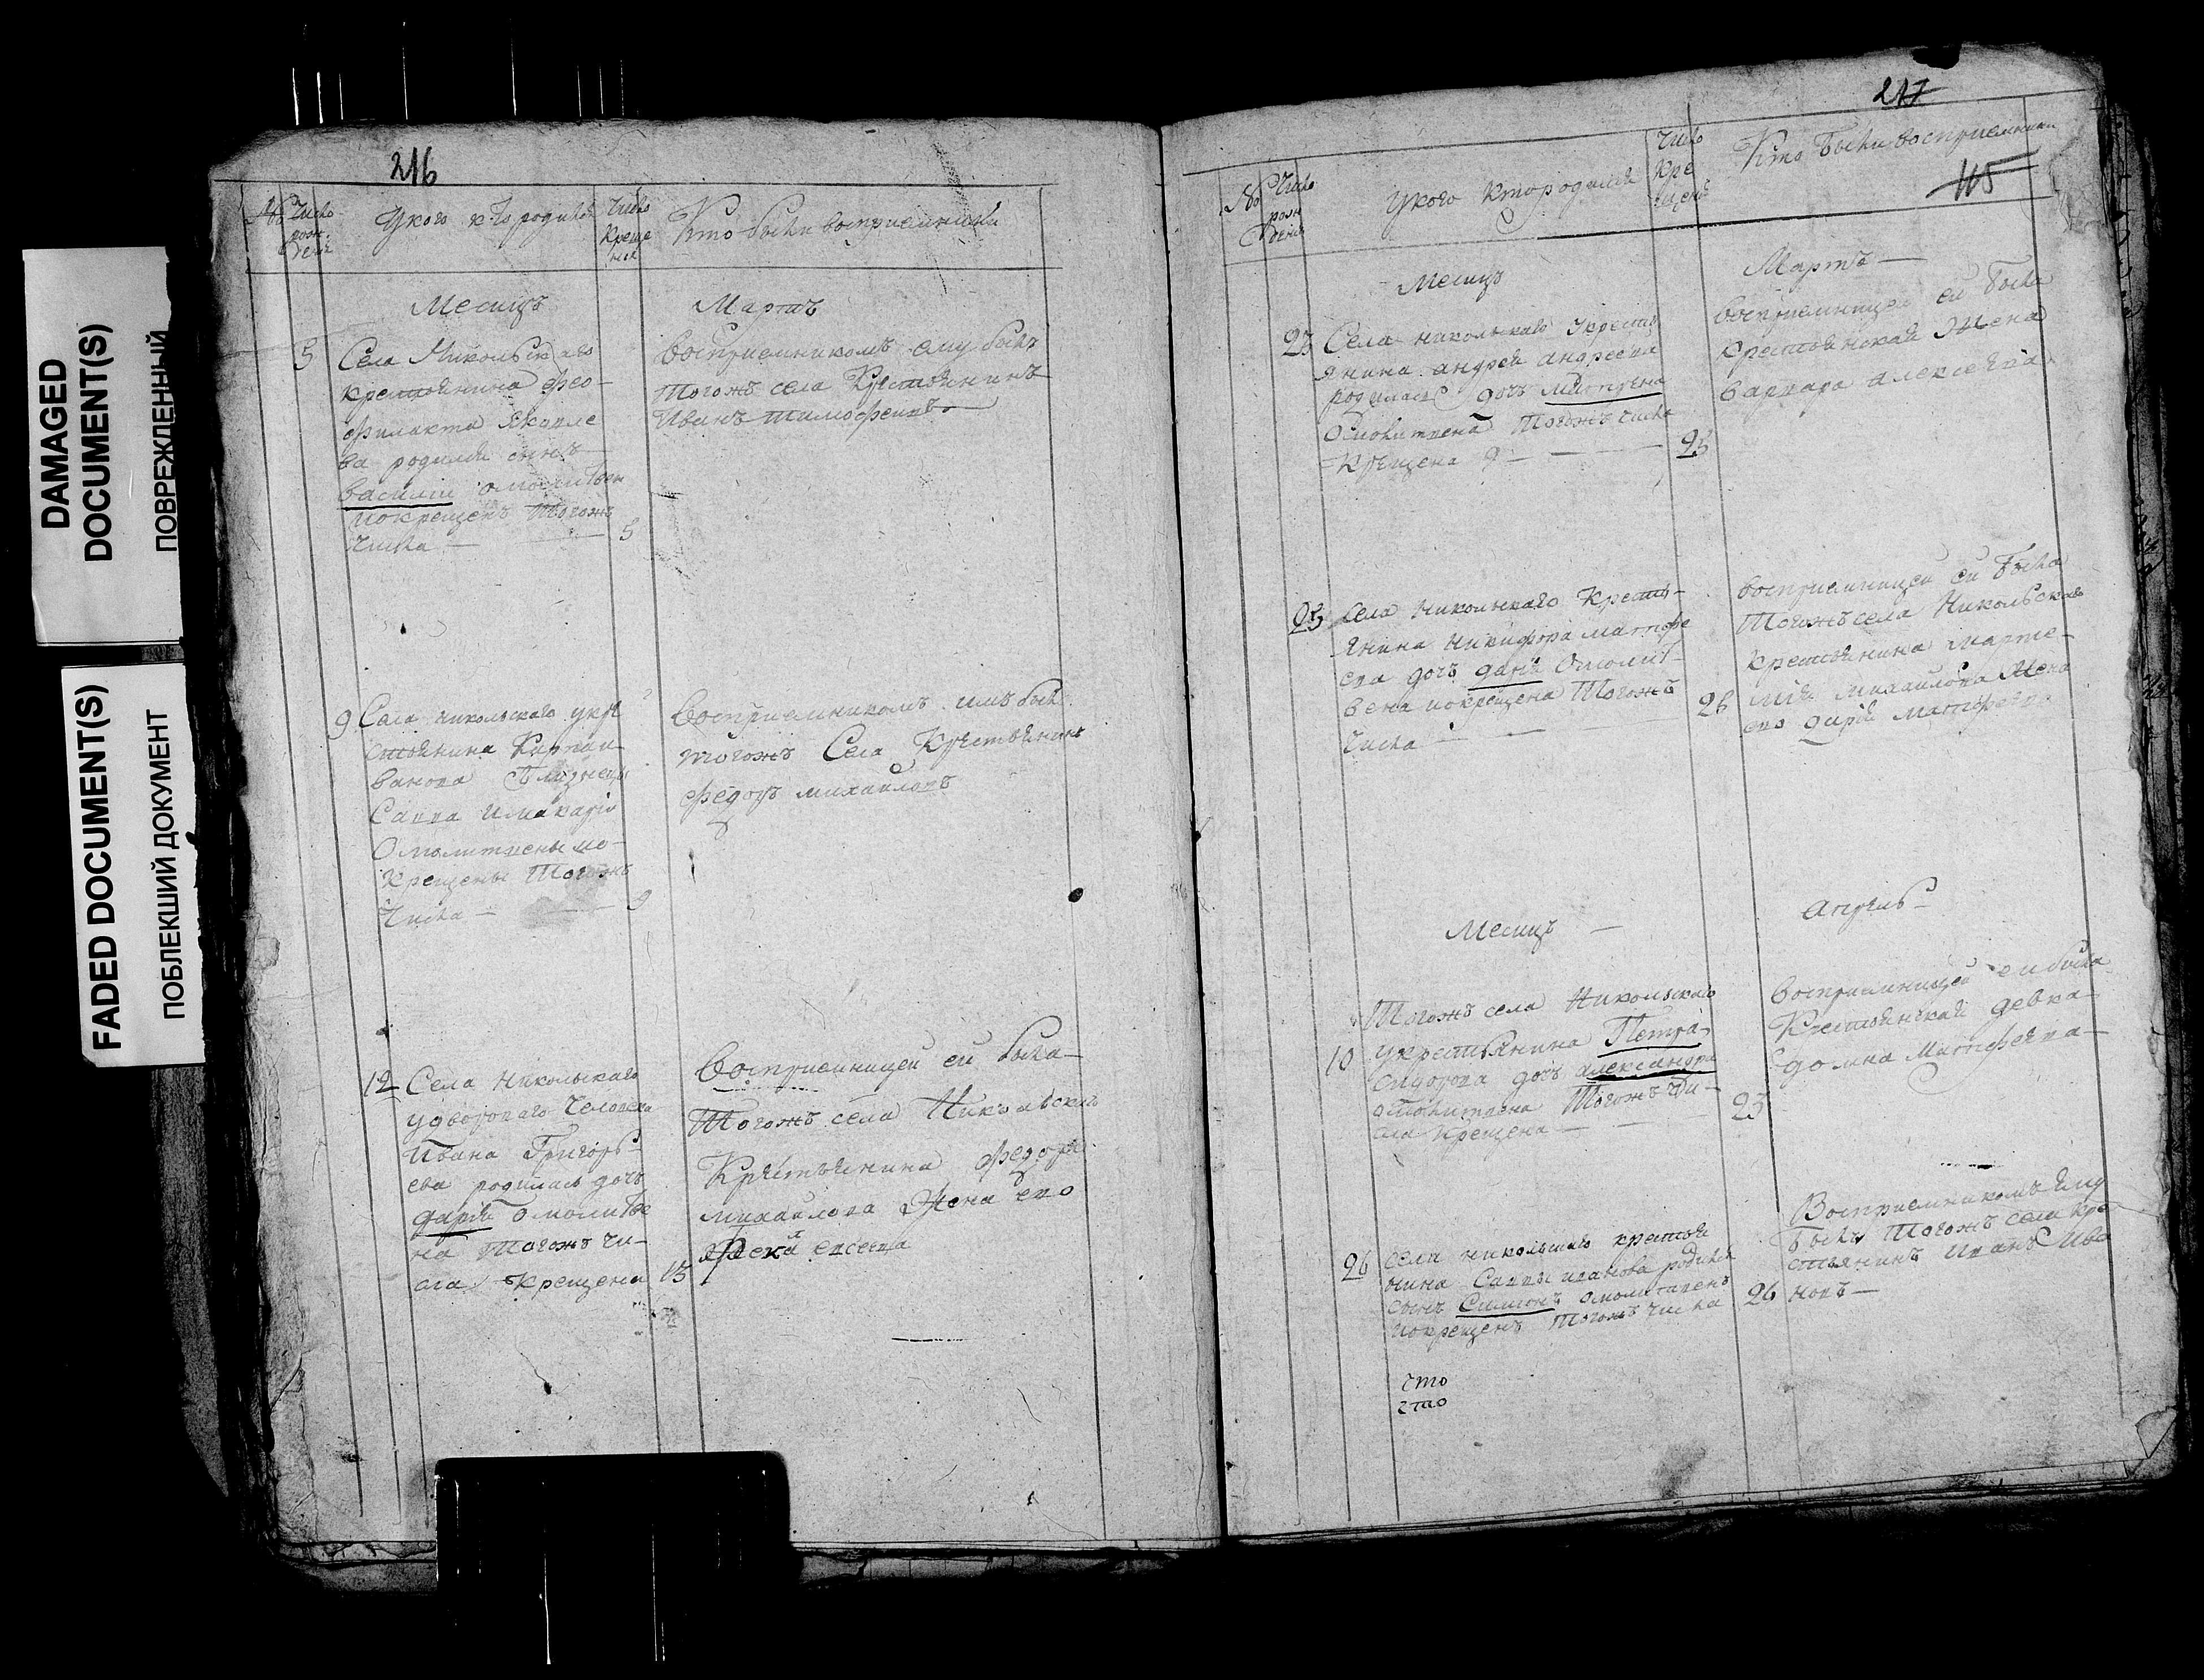 DAMAGED
DOCUMENT(S)
ПОВРЕЖДЕННЫЙ
FADED DOCUMENT(S)
ПОБЛЕКШИЙ ДОКУМЕНТ
216
№
Число
рож
дения
Укого кто родился
Число
Креще
ния
Кто были восприемники
Месяцъ
Мартъ
5
Села Никольскаго
крестьянина фео-
филакта Яковле
ва родился сынъ
василiи омолитвен
покрещенъ тогожъ
числа —
5
восприемникомъ ему былъ
тогожъ села Крестьянинъ
Иванъ тимофеевъ
9
Села никольскаго укре
стьянина Карпаи
ванова близнецы
Савва имакарiи
Омолитвены ио-
крещены тогожъ
числа —
9
восприемникомъ имъ былъ
тогожъ Села Крестьянинъ
федоръ михаиловъ
12
Села никольскаго
удвороваго человека
Ивана Григорь-
ева родилась дочь
дарiя омолитве
на тогожъ чи-
сла крещена
13
восприемницей ей была
тогожъ села Никольскаго
Крестьянина федора
михаилова Жена ево
евсеева
217
115
№
Число
рож
дения
Укого кто родился
Число
Кре
щения
Кто были восприемники
Месяцъ
Мартъ —
23
Села никольскаго Укресть
янина андрея андреева
родилась дочь матрена
Омолитвена тогожъ числа
Крещена
23
восприемницей ей была
крестьянская Жена
варвара алексеева
25
села никольскаго Кресть-
янина никифора матфе
ева дочь дарiя Омолит-
вена покрещена тогожъ
числа
восприемницей ей была
тогожъ села Никольскаго
крестьянина
михаилова Жена
ево дарiя матфеева
Месяцъ —
Апрель —
10
Тогожъ села Никольскаго
укрестьянина Петра
сидорова дочь александра
омолитвена тогожъ чи-
сла крещена —
23
восприемницей ей была
Крестьянская девка
домна Матфеева —
26
села никольскаго крестья
нина Саввы иванова родился
сынъ Симионъ омолитвенъ
покрещенъ тогожъ числа
26
Восприемникомъ ему
былъ тогожъ села кре
стьянинъ Иванъ Ива
новъ —
что
что